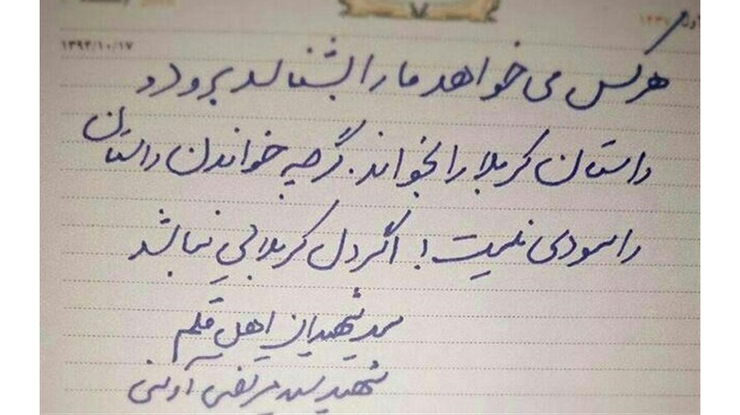 ۱۳۹۲/۱۰/۱۷
هرکس می خواهد ما را بشناسد برود و
داستان کربلا را بخواند. گرچه خواندن داستان
را سودی نیست؛ اگر دل کربلایی نباشد
سید شهیدان اهل قلم
شهید سید مرتضی آوینی